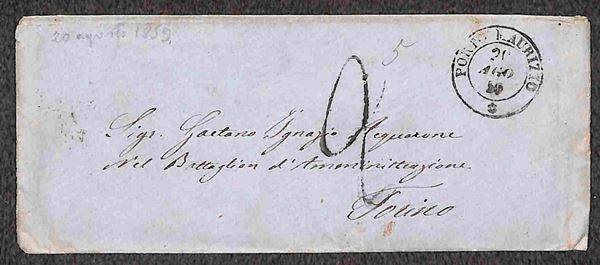 20 agosto 1859
5
2
PORTO MAURIZIO
20
AGO
59
8
Sigr. Gaetano Ignazio Acquarone
Nel Battaglion d'Amministrazione
Torino